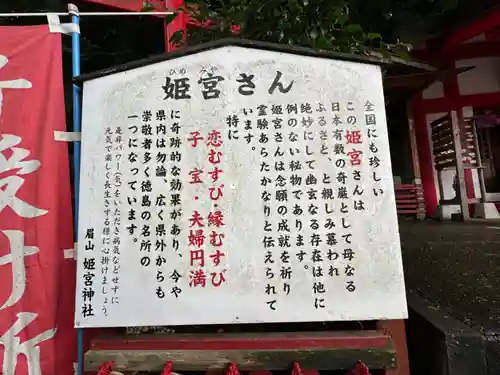 姫宮さん
ひめ みや
全国にも珍しい
この姫宮さんは
日本有数の奇巌として母なる
ふるさと、と親しみ慕われ
絶妙にして幽玄なる存在は他に
例のない秘物であります。
姫宮さんは念願の成就を祈り
霊験あらたかなりと伝えられて
います。
特に
恋むすび・縁むすび
子 宝・夫婦円満
に奇跡的な効果があり、今や
県内は勿論、広く県外からも
崇敬者多く徳島の名所の
一つになっています。
是非パワー(気)をいただき病気などせずに
元気で楽しく長生きする様に心掛けましょう
眉山 姫宮神社
受け祈